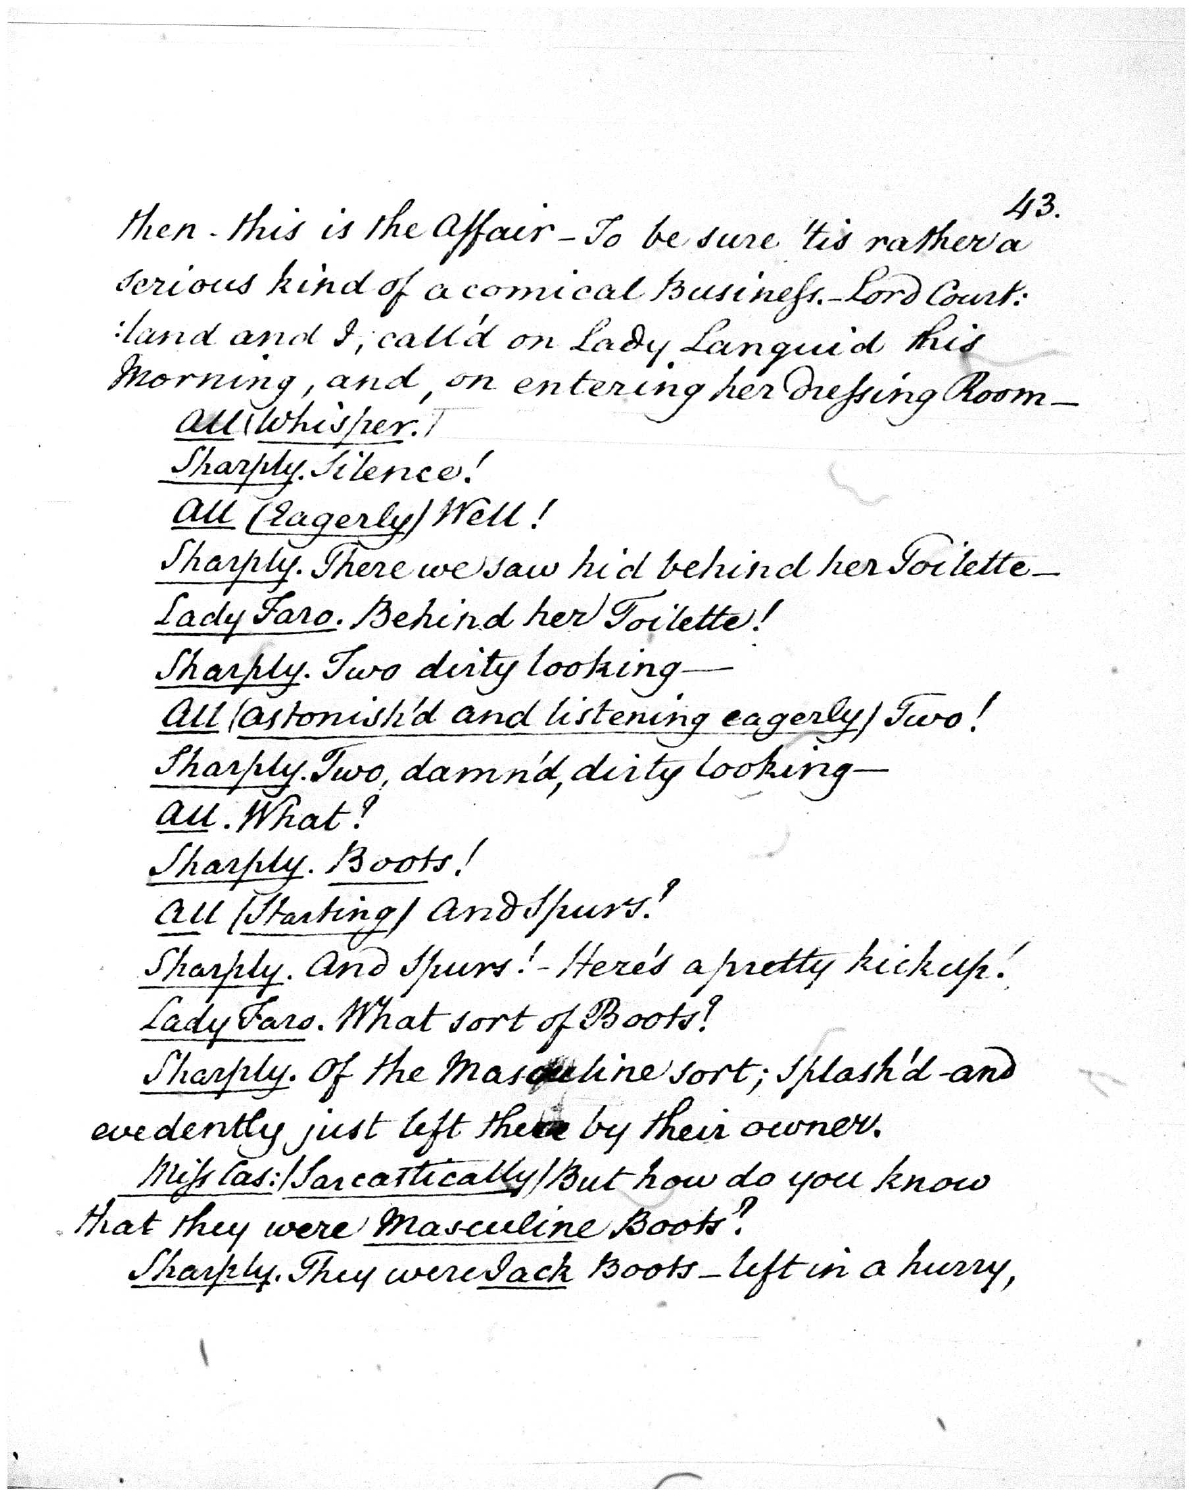 43.
then - this is the Affair - To be sure 'tis rather a
serious kind of a comical Businefs. - Lord Court:
:land and I, call'd on Lady Languid this
Morning, and, on entering her Drefsing Room -
All (Whisper.)
Sharply. Silence!
All (Eagerly) Well!
Sharply. There we saw hid behind her Toilette -
Lady Faro. Behind her Toilette!
Sharply. Two dirty looking —
All (astonish'd and listening eagerly) Two!
Sharply. Two, damn'd, dirty looking —
All. What?
Sharply. Boots!
All (Starting) And Spurs?
Sharply. And Spurs! - Here's a pretty kick up!
Lady Faro. What sort of Boots?
Sharply. Of the Masculine sort; Splash'd - and
evedently just left there by their owner.
Mifs Cas: (Sarcastically) But how do you know
that they were Masculine Boots?
Sharply. They were Jack Boots - left in a hurry,